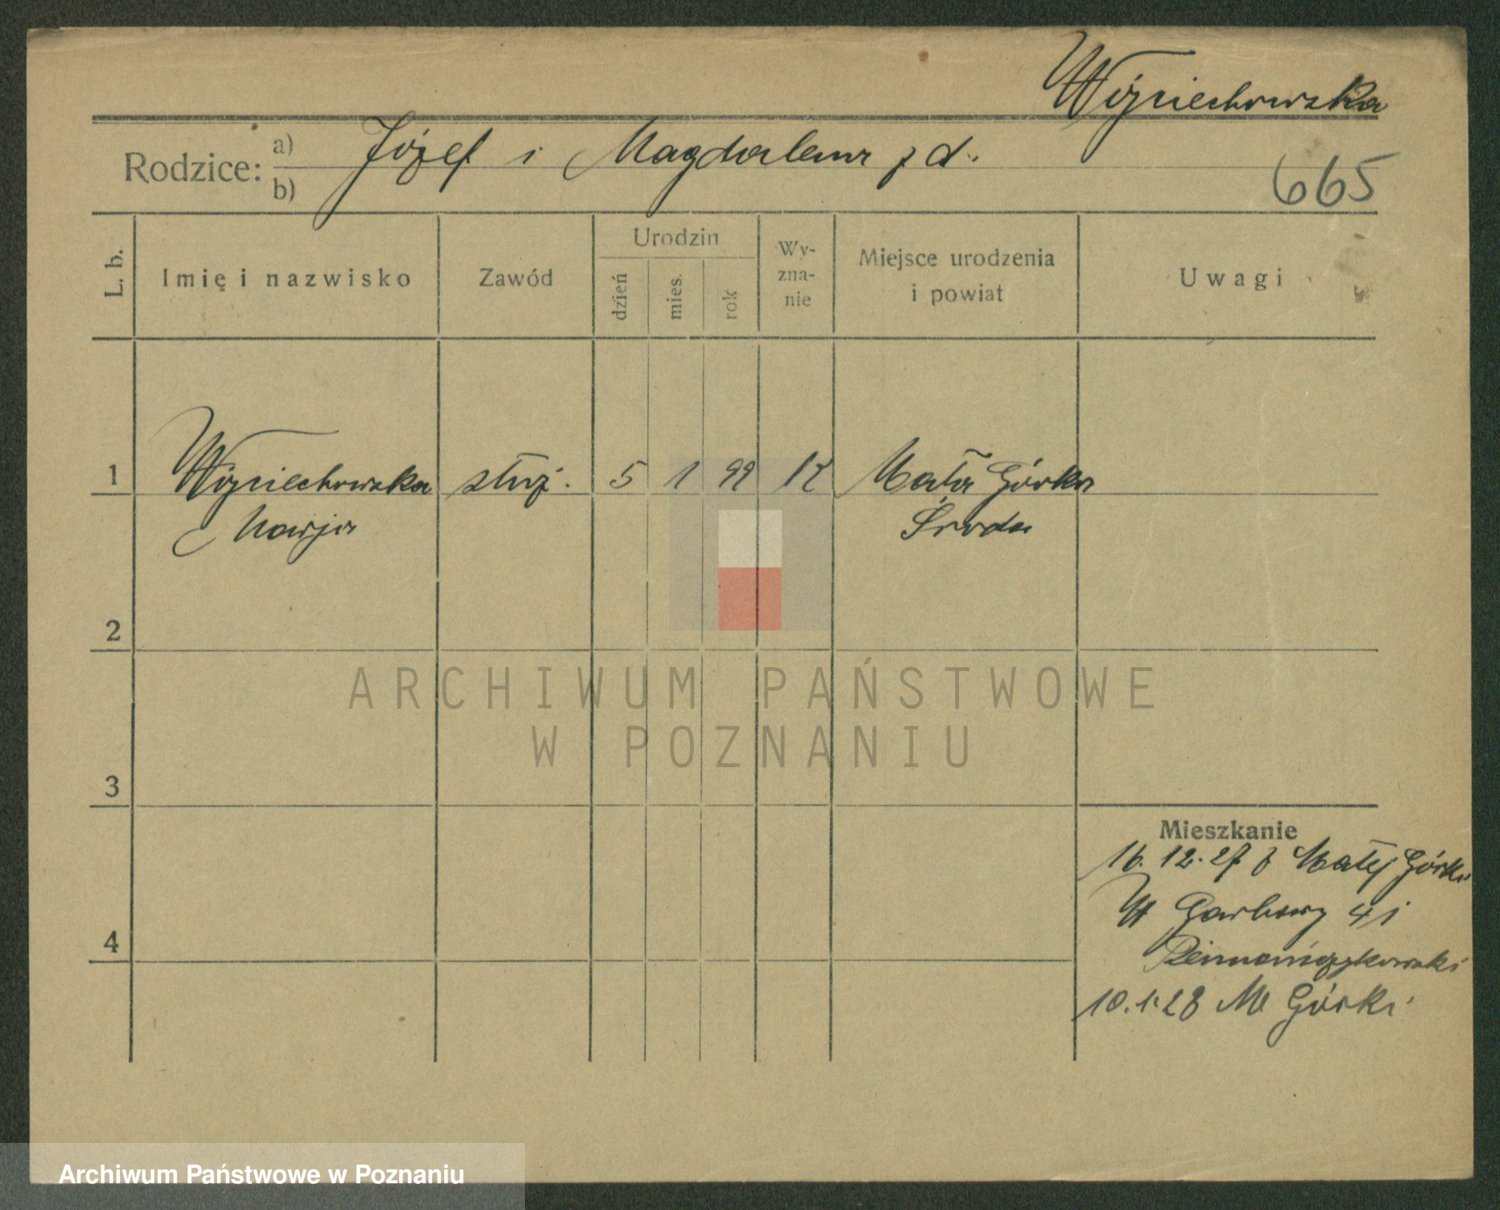 Wojciechowska
Rodzice: a) Józef i Magdalena z d.
b)
665
L. b.
Imię i nazwisko
Zawód
Urodzin
dzień
mies.
rok
Wy-
zna-
nie
Miejsce urodzenia
i powiat
Uwagi
1
Wojciechowska służ. 5 1 99 K Mała Górka
Marja Środa
2
3
4
Mieszkanie
16.12.27 z Małej Górki
W Garbary 41
10.1.28 M Górki
ARCHIWUM PAŃSTWOWE
W POZNANIU
Archiwum Państwowe w Poznaniu